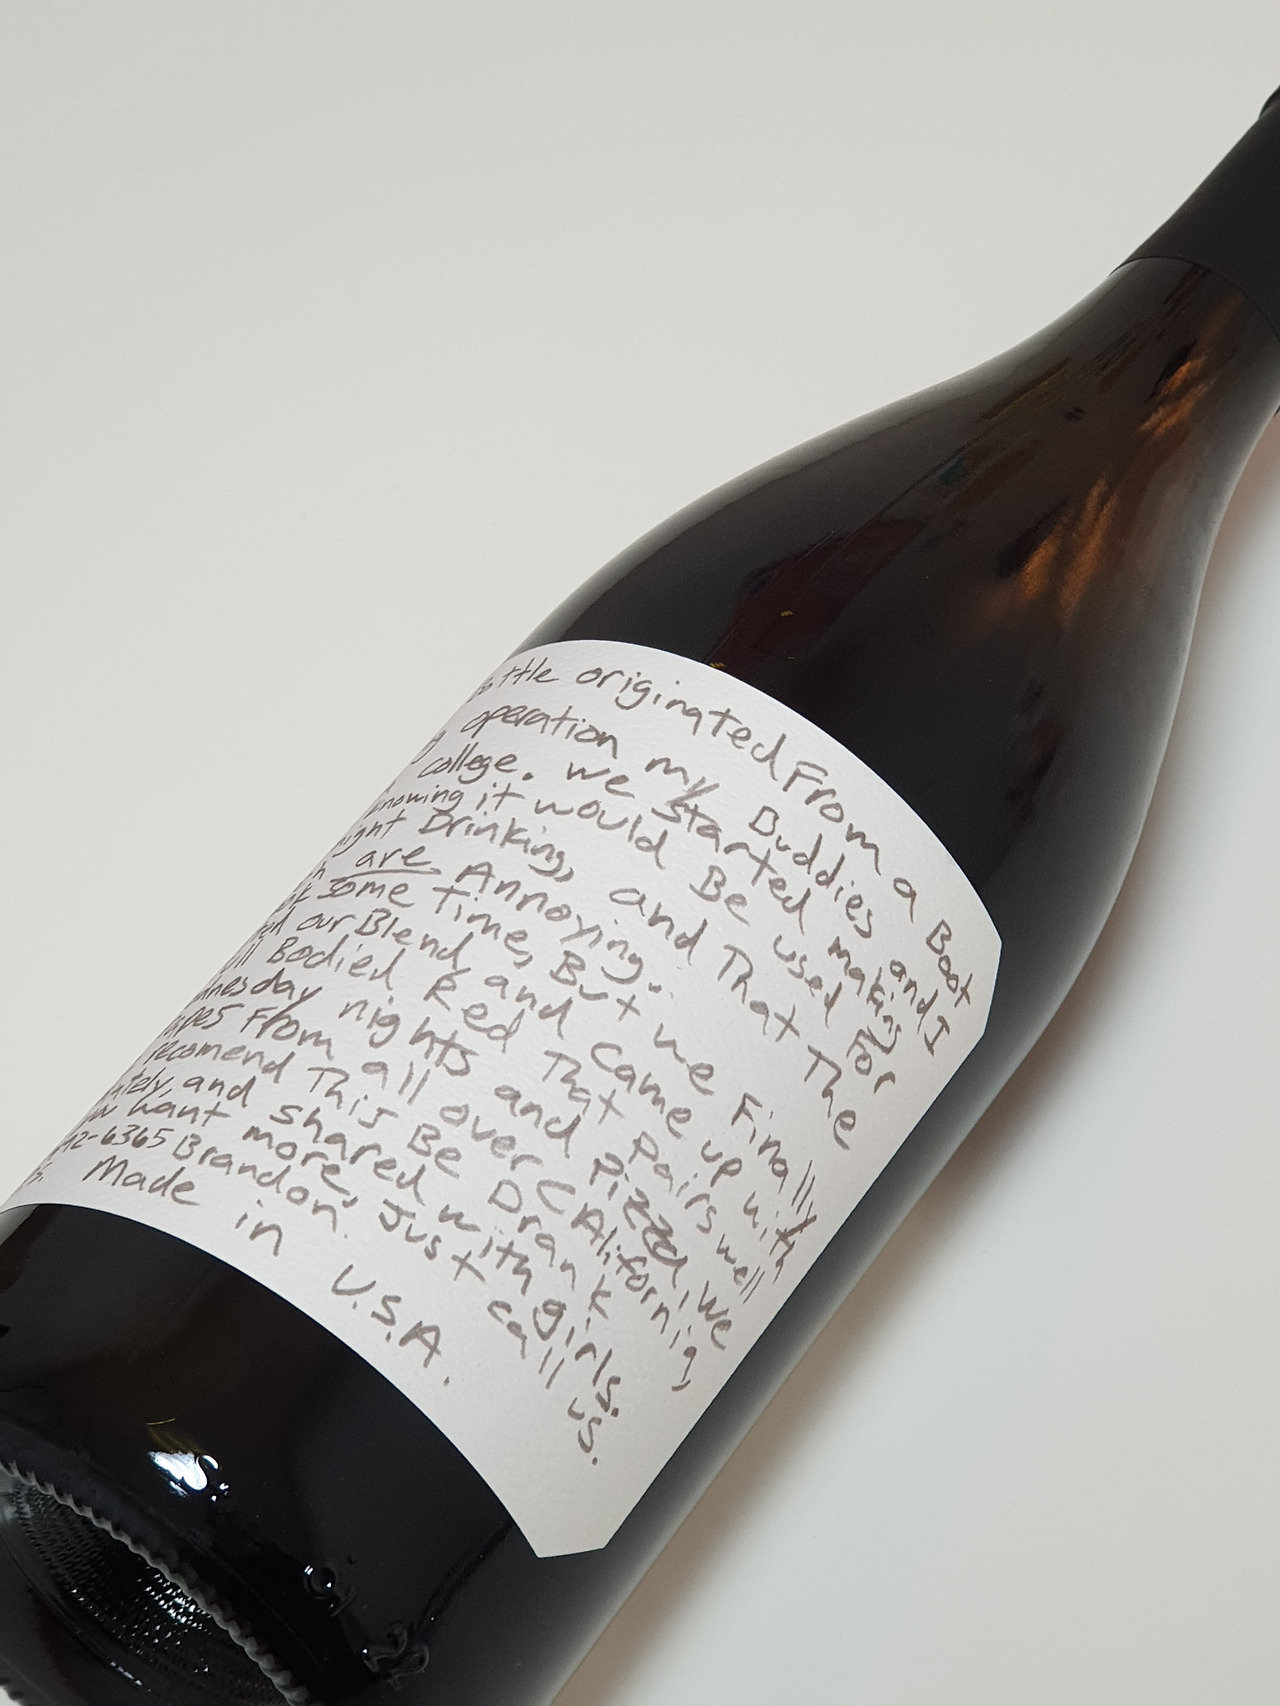 ttle originated From a Boot
operation my Buddies and I
college. we started making
knowing it would Be used For
Drinking, and That The
are Annoying..
some Time, But we Finally
our Blend, and Came up with
Bodied Red That Pairs well
nights and pizza, we
From all over CAlifornia,
recomend This Be Drank
and shared with girls.
want more, Just call us.
-6365 Brandon.
Made in U.S.A.